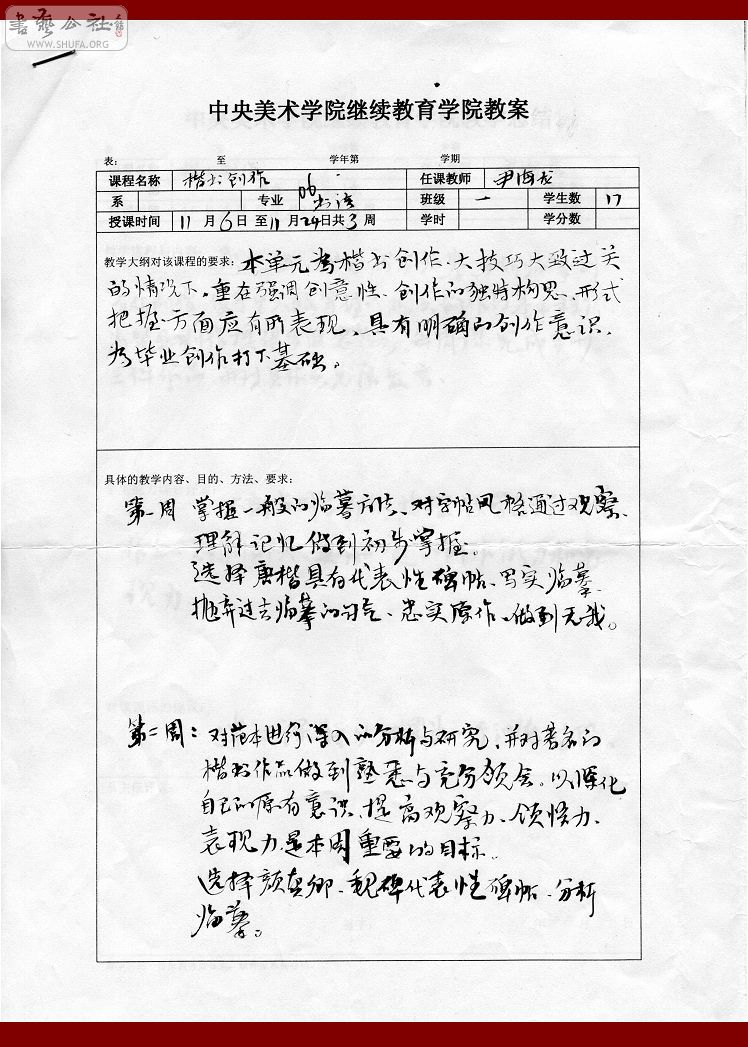 書藝公社
WWW.SHUFA.ORG
中央美术学院继续教育学院教案
表: 至 学年第 学期
课程名称 楷书创作 任课教师 尹海龙
系 专业 06 书法 班级 一 学生数 17
授课时间 11月6日至11月24日共3周 学时 学分数
教学大纲对该课程的要求: 本单元为楷书创作、大技巧大致过关
的情况下,重在强调创意性、创作的独特构思、形式
把握方面应有所表现、具有明确的创作意识,
为毕业创作打下基础。
具体的教学内容、目的、方法、要求:
第一周 掌握一般的临摹方法、对字帖风格通过观察、
理解记忆做到初步掌握。
选择唐楷具有代表性碑帖、写实临摹、
抛弃过去临摹的习气、忠实原作、做到无我。
第二周: 对范本进行深入的分析与研究,并对著名的
楷书作品做到熟悉与充分领会。以深化
自己的原有意识、提高观察力、领悟力、
表现力是本周重要的目标。
选择颜真卿、魏碑代表性碑帖、分析
临摹。